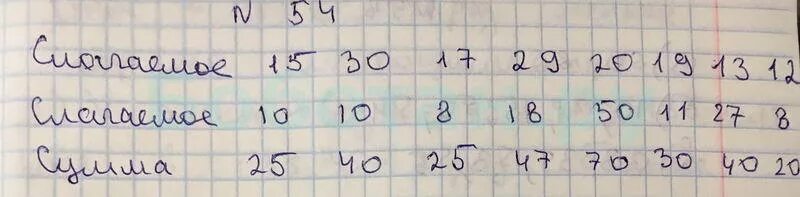 N 54
Слагаемое 15 30 17 29 20 19 13 12
Слагаемое 10 10 8 18 50 11 27 8
Сумма 25 40 25 47 70 30 40 20